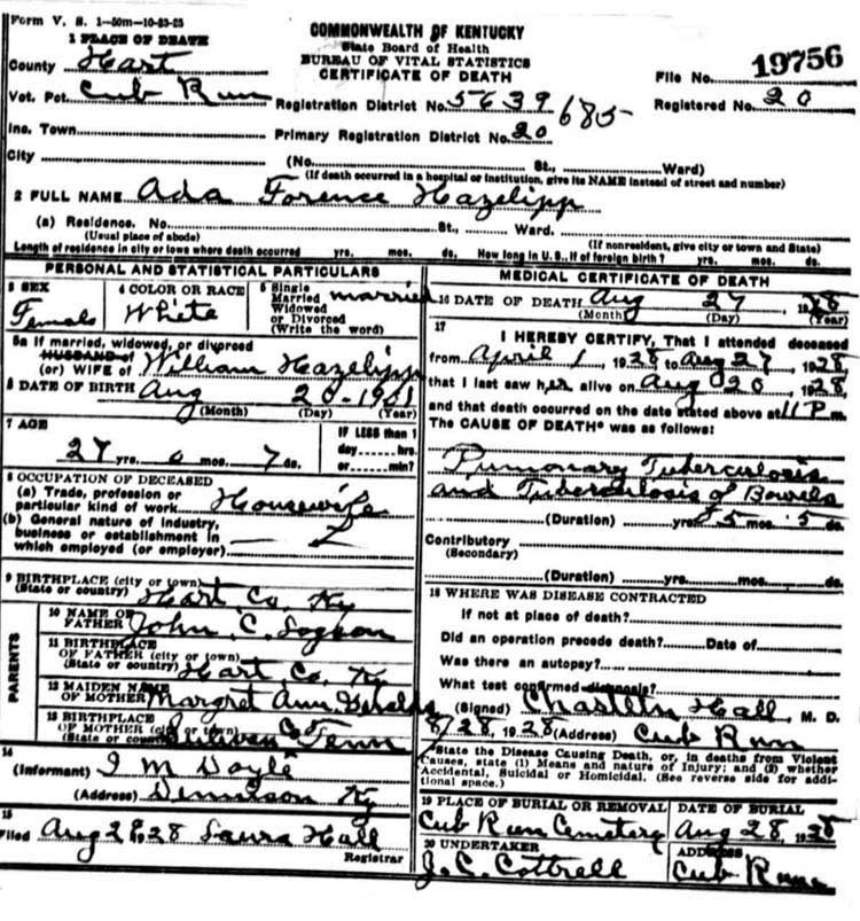 Form V. S. 1-50m-10-23-25
COMMONWEALTH OF KENTUCKY
State Board of Health
BUREAU OF VITAL STATISTICS
CERTIFICATE OF DEATH
1 PLACE OF DEATH
County Hart
Vot. Pct. Cub Run
Inc. Town
City
File No. 19756
Registration District No. 5639 685
Registered No. 20
Primary Registration District No. 20
(No. St., Ward)
(If death occurred in a hospital or institution, give its NAME instead of street and number)
2 FULL NAME Ada Forence Hazelipp
(a) Residence. No. St., Ward.
(Usual place of abode) (If nonresident, give city or town and State)
Length of residence in city or town where death occurred yrs. mos. ds. How long in U. S., if of foreign birth? yrs. mos. ds.
PERSONAL AND STATISTICAL PARTICULARS
3 SEX
Female
4 COLOR OR RACE
White
5 Single
Married
Widowed
or Divorced
(Write the word)
married
5a If married, widowed, or divorced
HUSBAND of
(or) WIFE of William Hazelipp
6 DATE OF BIRTH Aug 20-1901
(Month) (Day) (Year)
7 AGE
27 yrs. 0 mos. 7 ds.
IF LESS than 1
day hrs.
or min?
8 OCCUPATION OF DECEASED
(a) Trade, profession or
particular kind of work Housewife
(b) General nature of industry,
business or establishment in
which employed (or employer)
9 BIRTHPLACE (city or town)
(State or country) Hart Co. Ky
PARENTS
10 NAME OF
FATHER John C.
11 BIRTHPLACE
OF FATHER (city or town)
(State or country) Hart Co. Ky
12 MAIDEN NAME
OF MOTHER Margret Ann
13 BIRTHPLACE
OF MOTHER (city or town)
(State or country) Co Tenn
14
(Informant) I M Doyle
(Address) Dennison Ky
15
Filed Aug 28, 28 Laura Hall
Registrar
MEDICAL CERTIFICATE OF DEATH
16 DATE OF DEATH Aug 27, 1928
(Month) (Day) (Year)
17
I HEREBY CERTIFY, That I attended deceased
from April 1, 1928 to Aug 27, 1928,
that I last saw her alive on Aug 20, 1928,
and that death occurred on the date stated above at 11 P m.
The CAUSE OF DEATH* was as follows:
Pumonary Tuberculosis
and Tuberculosis of Bowels
(Duration) yrs. 5 mos. 5 ds.
Contributory
(Secondary)
(Duration) yrs. mos. ds.
18 WHERE WAS DISEASE CONTRACTED
If not at place of death?
Did an operation precede death? Date of
Was there an autopsy?
What test confirmed diagnosis?
(Signed) Hall, M. D.
8/28, 1928 (Address) Cub Run
*State the Disease Causing Death, or, in deaths from Violent
Causes, state (1) Means and nature of Injury; and (2) whether
Accidental, Suicidal or Homicidal. (See reverse side for addi-
tional space.)
19 PLACE OF BURIAL OR REMOVAL
Cub Run Cemetery
DATE OF BURIAL
Aug 28, 1928
20 UNDERTAKER
J. C. Cottrell
ADDRESS
Cub Run